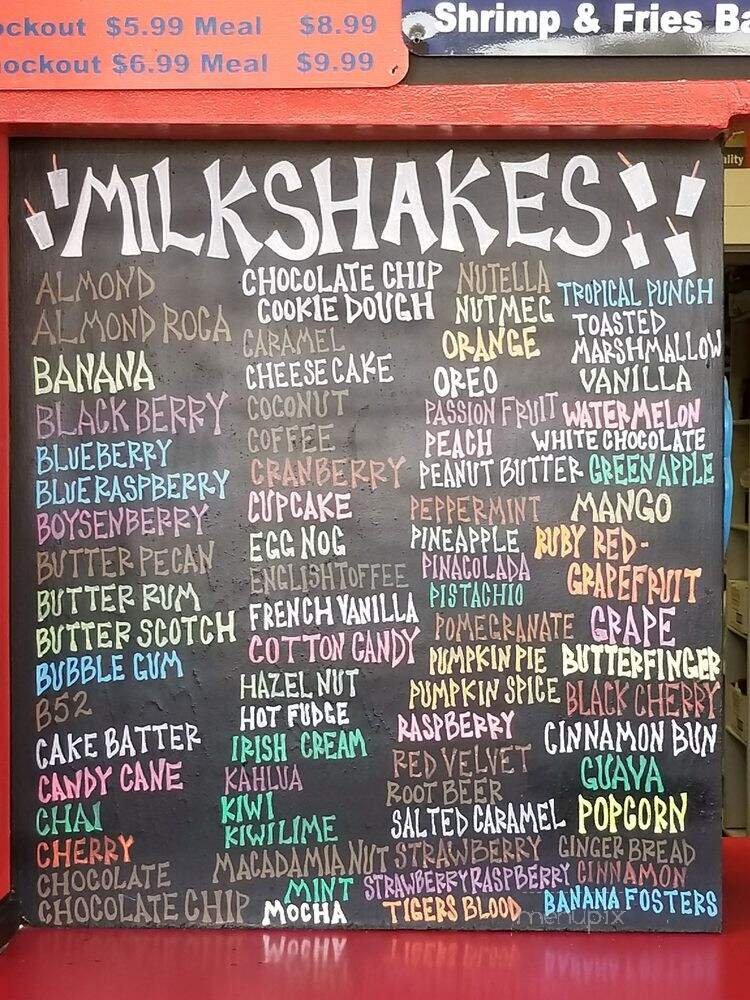 ockout $5.99 Meal $8.99
ockout $6.99 Meal $9.99
Shrimp & Fries Ba
MILKSHAKES
ALMOND
ALMOND ROCA
BANANA
BLACK BERRY
BLUEBERRY
BLUE RASPBERRY
BOYSENBERRY
BUTTER PECAN
BUTTER RUM
BUTTER SCOTCH
BUBBLE GUM
B52
CAKE BATTER
CANDY CANE
CHAI
CHERRY
CHOCOLATE
CHOCOLATE CHIP
CHOCOLATE CHIP
COOKIE DOUGH
CARAMEL
CHEESE CAKE
COCONUT
COFFEE
CRANBERRY
CUPCAKE
EGG NOG
ENGLISH TOFFEE
FRENCH VANILLA
COTTON CANDY
HAZEL NUT
HOT FUDGE
IRISH CREAM
KAHLUA
KIWI
KIWI LIME
MACADAMIA NUT
MINT
MOCHA
NUTELLA
NUTMEG
ORANGE
OREO
PASSION FRUIT
PEACH
PEANUT BUTTER
PEPPERMINT
PINEAPPLE
PINACOLADA
PISTACHIO
POMEGRANATE
PUMPKIN PIE
PUMPKIN SPICE
RASPBERRY
RED VELVET
ROOT BEER
SALTED CARAMEL
STRAWBERRY
STRAWBERRY RASPBERRY
TIGERS BLOOD
TROPICAL PUNCH
TOASTED
MARSHMALLOW
VANILLA
WATERMELON
WHITE CHOCOLATE
GREEN APPLE
MANGO
RUBY RED-
GRAPEFRUIT
GRAPE
BUTTERFINGER
BLACK CHERRY
CINNAMON BUN
GUAVA
POPCORN
GINGER BREAD
CINNAMON
BANANA FOSTERS
menupix